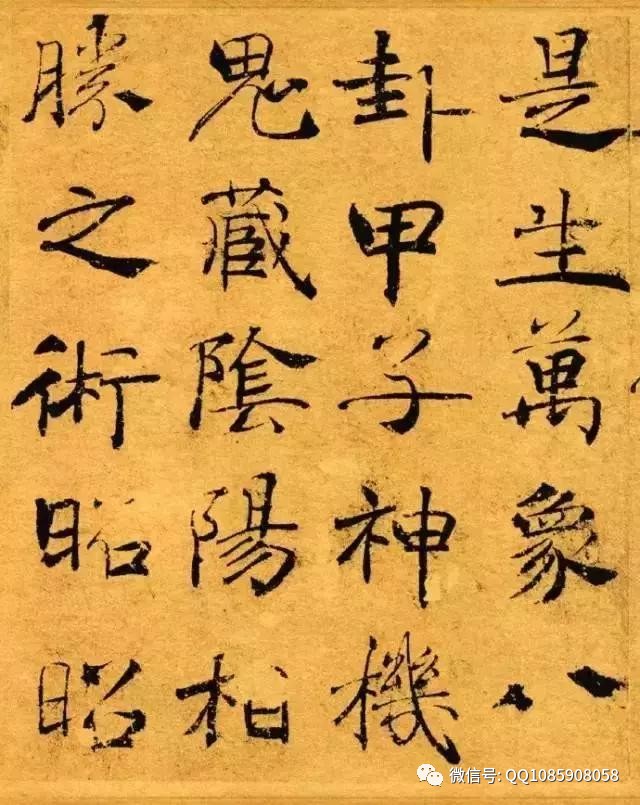 是生萬象八
卦甲子神機
鬼藏陰陽相
勝之術昭昭
微信号: QQ1085908058